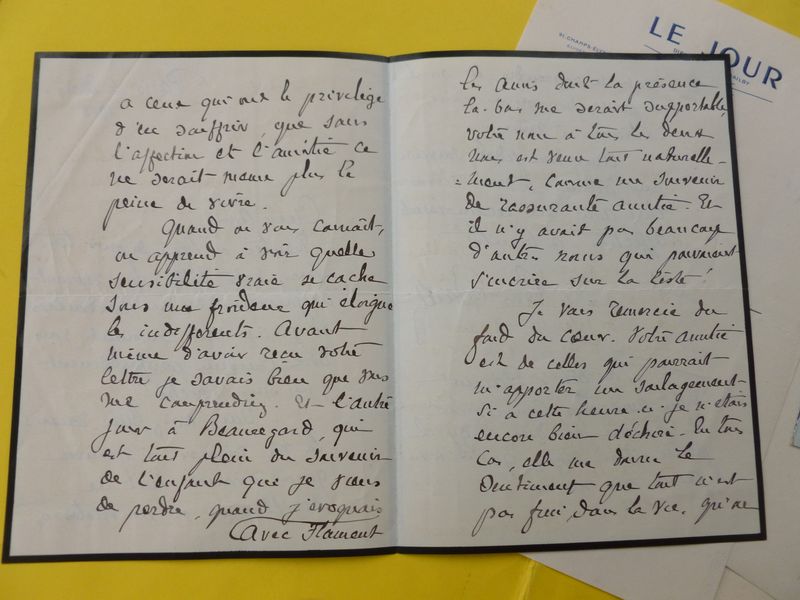 à ceux qui ont le privilège
d'en souffrir, que sans
l'affection et l'amitié ce
ne serait même plus la
peine de vivre.
Quand on vous connaît,
on apprend à voir quelle
sensibilité vraie se cache
sous une froideur qui éloigne
les indifférents. Avant
même d'avoir reçu votre
lettre je savais bien que vous
me comprendriez. Et l'autre
jour à Beauregard, qui
est tout plein du souvenir
de l'enfant que je viens
de perdre, quand j'évoquais
avec Flament
les amis dont la présence
là-bas me serait supportable,
votre nom à tous les deux
nous est venu tout naturelle-
=ment, comme un souvenir
de rassurante amitié. Et
il n'y avait pas beaucoup
d'autres noms qui pouvaient
s'inscrire sur la liste!
Je vous remercie du
fond du cœur. Votre amitié
est de celles qui pourrait
m'apporter un soulagement
si à cette heure-ci je n'étais
encore bien déchiré. En tous
cas, elle me donne le
sentiment que tout n'est
pas fini dans la vie, qu'une
LE JOUR
91, CHAMPS-ÉLY